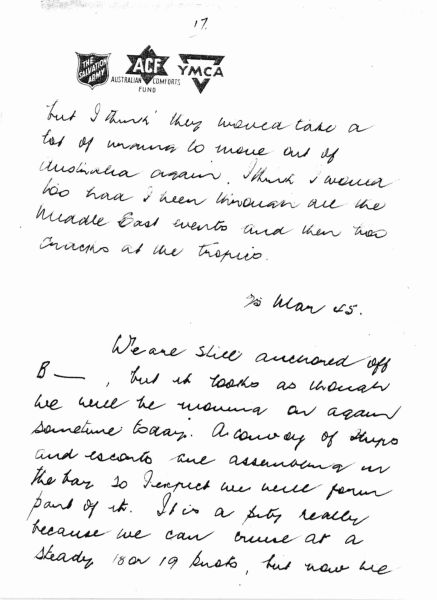 17.
THE SALVATION ARMY
ACF
AUSTRALIAN COMFORTS FUND
YMCA
but I think they would take a
lot of urging to move out of
Australia again. I think I would
too had I been through all the
Middle East events and then two
cracks at the tropics.
Mar 45.
We are still anchored off
B—, but it looks as though
we will be moving on again
sometime today. A convoy of ships
and escorts are assembling in
the bay so I expect we will form
part of it. It is a pity really
because we can cruise at a
steady 18 or 19 knots, but now we